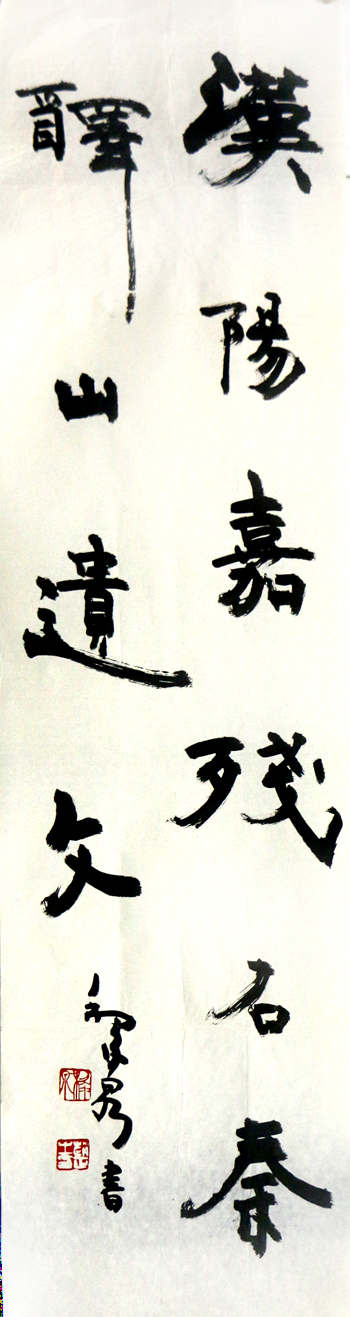 漢陽嘉殘石秦
醳山遺文
書